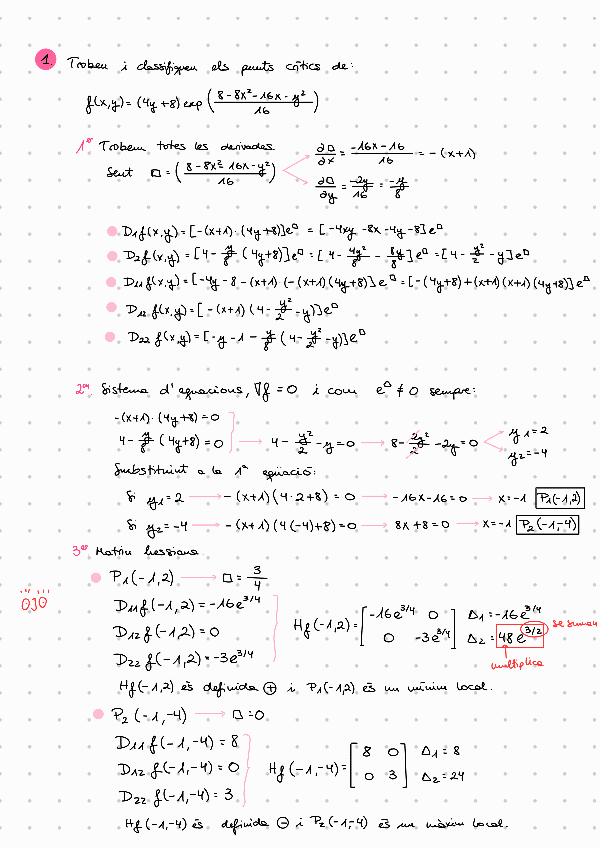 1. Trobeu i classifiqueu els punts crítics de:
f(x,y)=(4y+8) exp((8-8x²-16x-y²)/16)
1er Trobem totes les derivades
Sent □=((8-8x²-16x-y²)/16) ∂□/∂x = (-16x-16)/16 = -(x+1)
∂□/∂y = -2y/16 = -y/8
D₁f(x,y)=[-(x+1)·(4y+8)]e^□ = [-4xy-8x-4y-8]e^□
D₂f(x,y)=[4-y/8(4y+8)]e^□=[4-4y²/8-8y/8]e^□=[4-y²/2-y]e^□
D₁₁f(x,y)=[-4y-8-(x+1)(-(x+1)(4y+8)]e^□=[-(4y+8)+(x+1)(x+1)(4y+8)]e^□
D₁₂f(x,y)=[-(x+1)(4-y²/2-y)]e^□
D₂₂f(x,y)=[-y-1-y/8(4-y²/2-y)]e^□
2on Sistema d'equacions, ∇f=0 i com e^□≠0 sempre:
-(x+1)·(4y+8)=0
4-y/8(4y+8)=0 → 4-y²/2-y=0 → 8-2y²/2-2y=0 y₁=2
y₂=-4
Substituint a la 1ª equació:
Si y₁=2 → -(x+1)(4·2+8)=0 → -16x-16=0 → x=-1 P₁(-1,2)
Si y₂=-4 → -(x+1)(4(-4)+8)=0 → 8x+8=0 → x=-1 P₂(-1,-4)
3er Matriu hessiana
P₁(-1,2) → □=3/4
OJO
D₁₁f(-1,2)=-16e^3/4
D₁₂f(-1,2)=0
D₂₂f(-1,2)=-3e^3/4
Hf(-1,2)=[-16e^3/4 0
0 -3e^3/4] Δ₁=-16e^3/4
Δ₂=48e^3/2 se suman
multiplica
Hf(-1,2) és definida ⊕ i P₁(-1,2) és un mínim local.
P₂(-1,-4) → □=0
D₁₁f(-1,-4)=8
D₁₂f(-1,-4)=0
D₂₂f(-1,-4)=3
Hf(-1,-4)=[8 0
0 3] Δ₁=8
Δ₂=24
Hf(-1,-4) és definida ⊖ i P₂(-1,-4) és un màxim local.